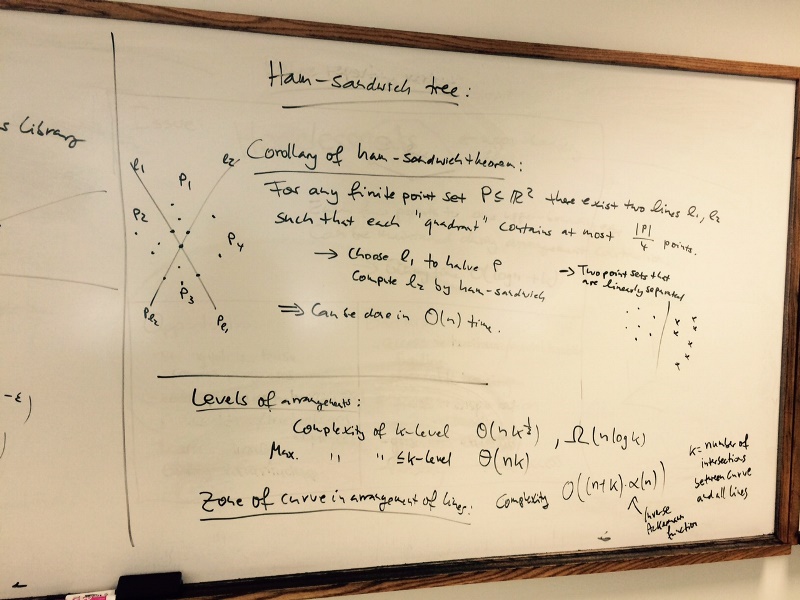 s Library
-ε)
)
Ham-sandwich tree:
Corollary of ham-sandwich theorem:
For any finite point set P ⊆ ℝ² there exist two lines ℓ1, ℓ2
such that each "quadrant" contains at most |P|/4 points.
→ Choose ℓ1 to halve P
Compute ℓ2 by ham-sandwich
⇒ Can be done in O(n) time.
→ Two point sets that
are linearly separated
ℓ1
ℓ2
P1
P2
P4
P3
Pℓ2
Pℓ1
Levels of arrangements:
Complexity of k-level O(nk^{1/3}), Ω(n log k)
Max. " " ≤k-level Θ(nk)
Zone of curve in arrangement of lines: Complexity O((n+k)·α(n))
Inverse
Ackermann
function
k = number of
intersections
between curve
and all lines